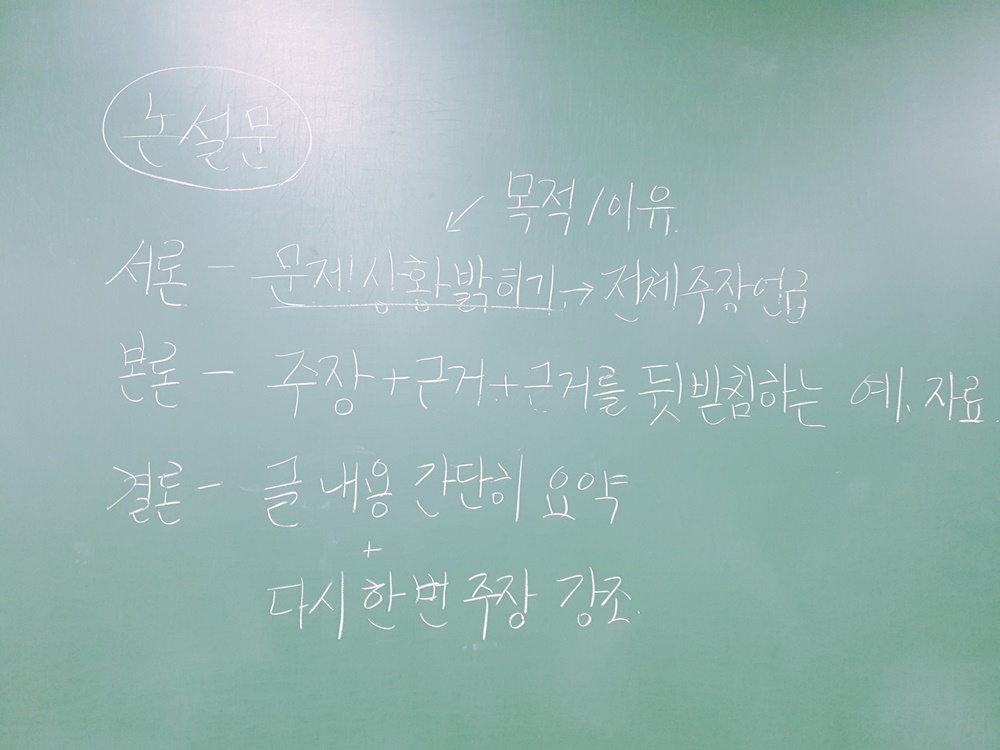 논설문
↙ 목적/이유.
서론 - 문제상황 밝히기 → 전체 주장 언급
본론 - 주장 + 근거 + 근거를 뒷받침하는 예, 자료.
결론 - 글 내용 간단히 요약
+
다시 한번 주장 강조.